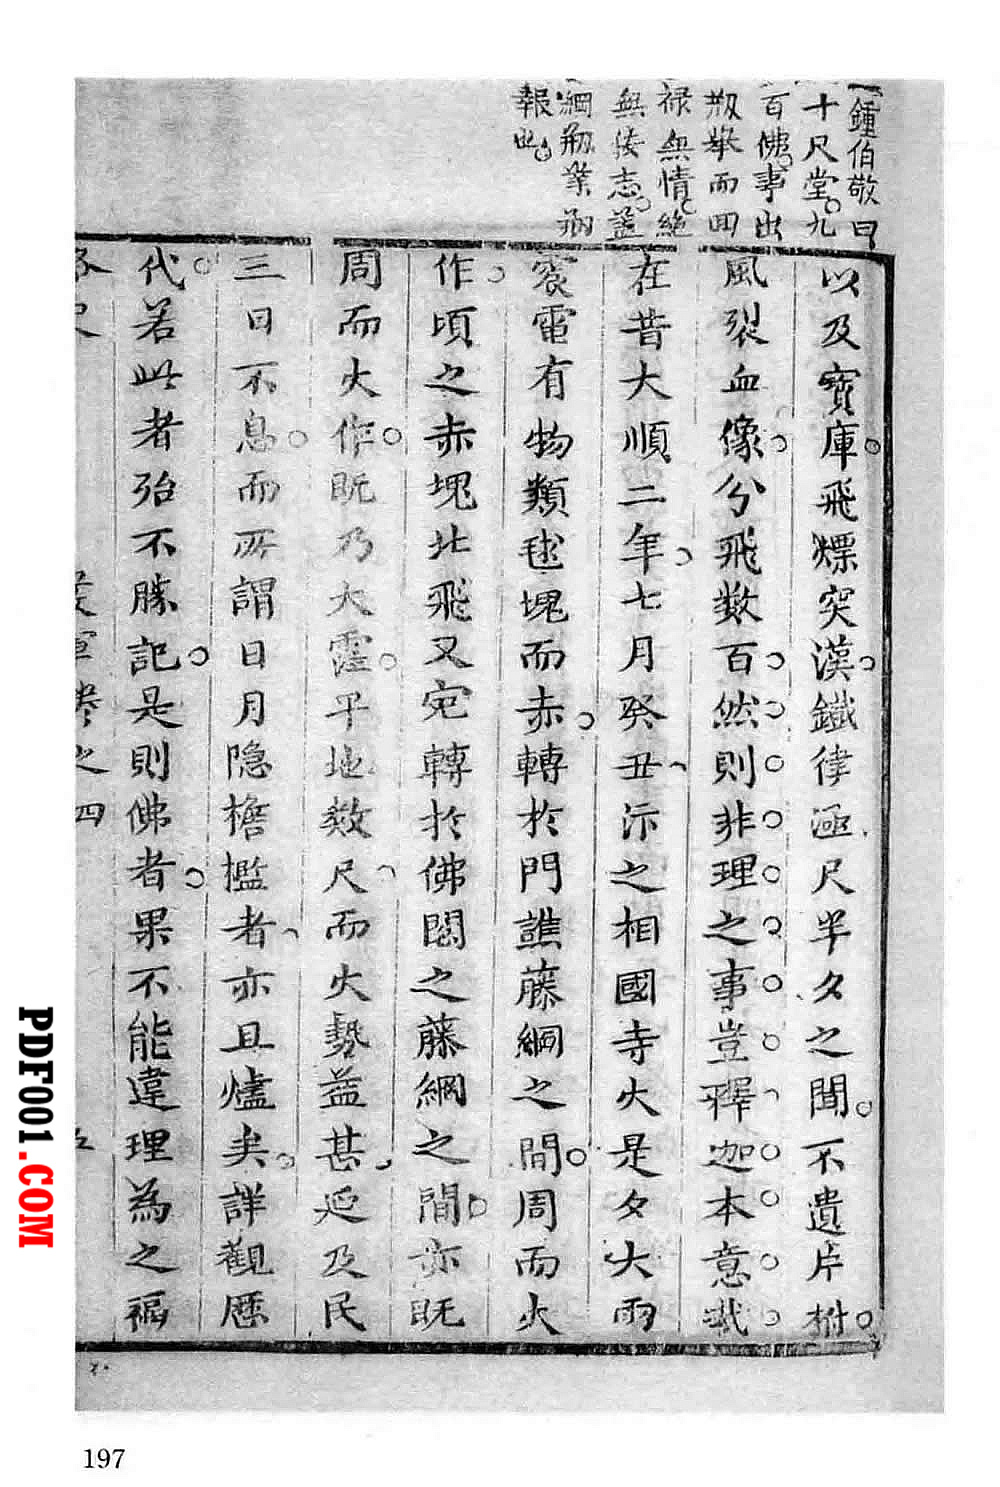 鍾伯敬曰
十尺堂九
百佛事出
叛舉而田
祿無情絕
無後志蓋
綱叛業兩
報此
以及寶庫飛爍突漢鐵律極尺半夕之聞不遺片柎
風裂血像分飛数百然則非理之事豈釋迦本意哉
在昔大順二年七月癸丑汴之相國寺火是夕大雨
震電有物類毬塊而赤轉於門譙藤綱之間周而火
作頃之赤塊北飛又宛轉於佛閣之藤綱之間亦既
周而火作既乃大霔平地数尺而火勢益甚延及民
三日不息而所謂日月隐檐檻者亦且燼矣詳觀歷
代若此者殆不勝記是則佛者果不能違理為之禍
卷之四
五
PDF001.COM
197